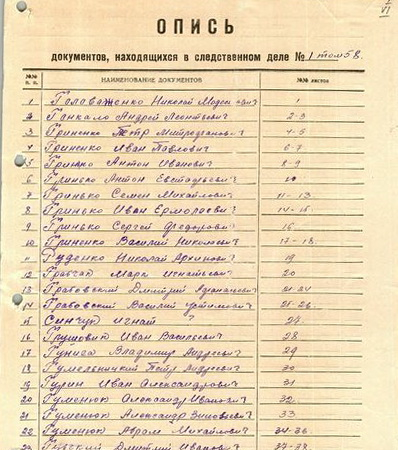 ОПИСЬ
документов, находящихся в следственном деле № 1 том 58.
№№ п. п. НАИМЕНОВАНИЕ ДОКУМЕНТОВ №№ листов
1 Николай 1
2 Ганкало Андрей Леонтьевич 2-3
3 Гриненко Петр Митрофанович 4-5
4 Гриненко Иван Павлович 6-7
5 Антон Иванович 8-9
6 Гринько Антон Евстафьевич
7 Гринько Семен Михайлович 11-13
8 Гринько Иван Ермолаевич 14-15
9 Гринько Сергей Федорович 16
10 Гриненко Василий Николаевич 17-18
11 Руденко Николай Архипович 19
12 Марк Игнатьевич 20
13 Грабовский Дмитрий Афанасьевич
14 Грабовский Василий 25-26
15 Синчук Игнат
16 Грушович Иван Васильевич 28
17 Владимир Андреевич 29
18 Гумельницкий Петр Андреевич 30
19 Гурин Иван Александрович 31
20 Гуменюк Александр Иванович 32
21 Гуменюк Александр Зиновьевич 33
22 Гуменюк Абрам Михайлович 34-36
23 Дмитрий Иванович 37-38